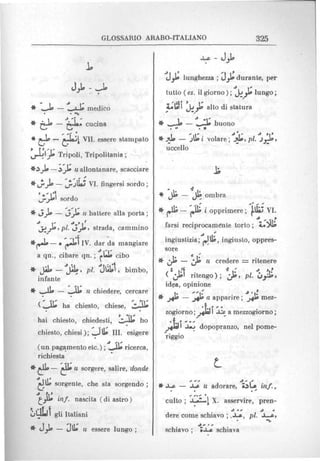 GLOSSARIO ARABO-ITALIANO 325
ط
طب - طول
* طب — طَبِيب medico
* طبخ — مَطْبَخ cucina
* طبع — اِنْطَبَعَ VII. essere stampato
طَرَابُلُس Tripoli, Tripolitania ;
* طرد — طَرَدَ u allontanare, scacciare
* طرش — تَطَارَشَ VI. fingersi sordo ;
أَطْرَش sordo
* طرق — طَرَقَ u battere alla porta ;
طَرِيق, pl. طُرُق, strada, cammino
* طعم — أَطْعَمَ IV. dar da mangiare
a qn., cibare qn. ; طَعَام cibo
* طفل — طِفْل, pl. أَطْفَال, bimbo,
infante
* طلب — طَلَبَ u chiedere, cercare
(طَلَبَ ha chiesto, chiese, طَلَبْتَ
hai chiesto, chiedesti, طَلَبْتُ ho
chiesto, chiesi) ; طَالَبَ III. esigere
(un pagamento etc.) ; طَلَب ricerca,
richiesta
* طلع — طَلَعَ u sorgere, salire, donde
طَالِع sorgente, che sta sorgendo ;
طُلُوع inf. nascita (di astro)
gli Italiani
* طول — طَالَ u essere lungo ;
طول - عبد
طُول lunghezza ; طُولَ durante, per
tutto (es. il giorno) ; طَوِيل lungo ;
طَوِيل القَامَة alto di statura
* طيب — طَيِّب buono
* طير — طَارَ i volare ; طَيْر, pl. طُيُور,
uccello
ظ
* ظل — ظِلّ ombra
* ظلم — ظَلَمَ i opprimere ; تَظَالَمَ VI.
farsi reciprocamente torto ;
ingiustizia ; ظَالِم, ingiusto, oppres-
sore
* ظن — ظَنَّ u credere = ritenere
(أَظُنُّ ritengo) ; ظَنّ, pl. ظُنُون,
idea, opinione
* ظهر — ظَهَرَ a apparire ; ظُهْر mez-
zogiorno ; a mezzogiorno ;
بَعْدَ الظُّهْر dopopranzo, nel pome-
riggio
ع
* عبد — عَبَدَ u adorare, عِبَادَة inf.,
culto ; اِسْتَعْبَدَ X. asservire, pren-
dere come schiavo ; عَبْد, pl. عَبِيد,
schiavo ; عَبْدَة schiava